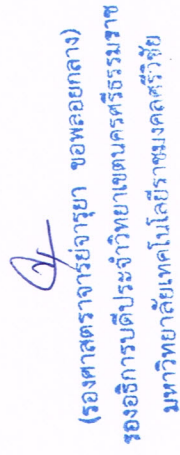 (รองศาสตราจารย์จารุยา ขอพลอยกลาง)
รองอธิการบดีประจำวิทยาเขตนครศรีธรรมราช
มหาวิทยาลัยเทคโนโลยีราชมงคลศรีวิชัย